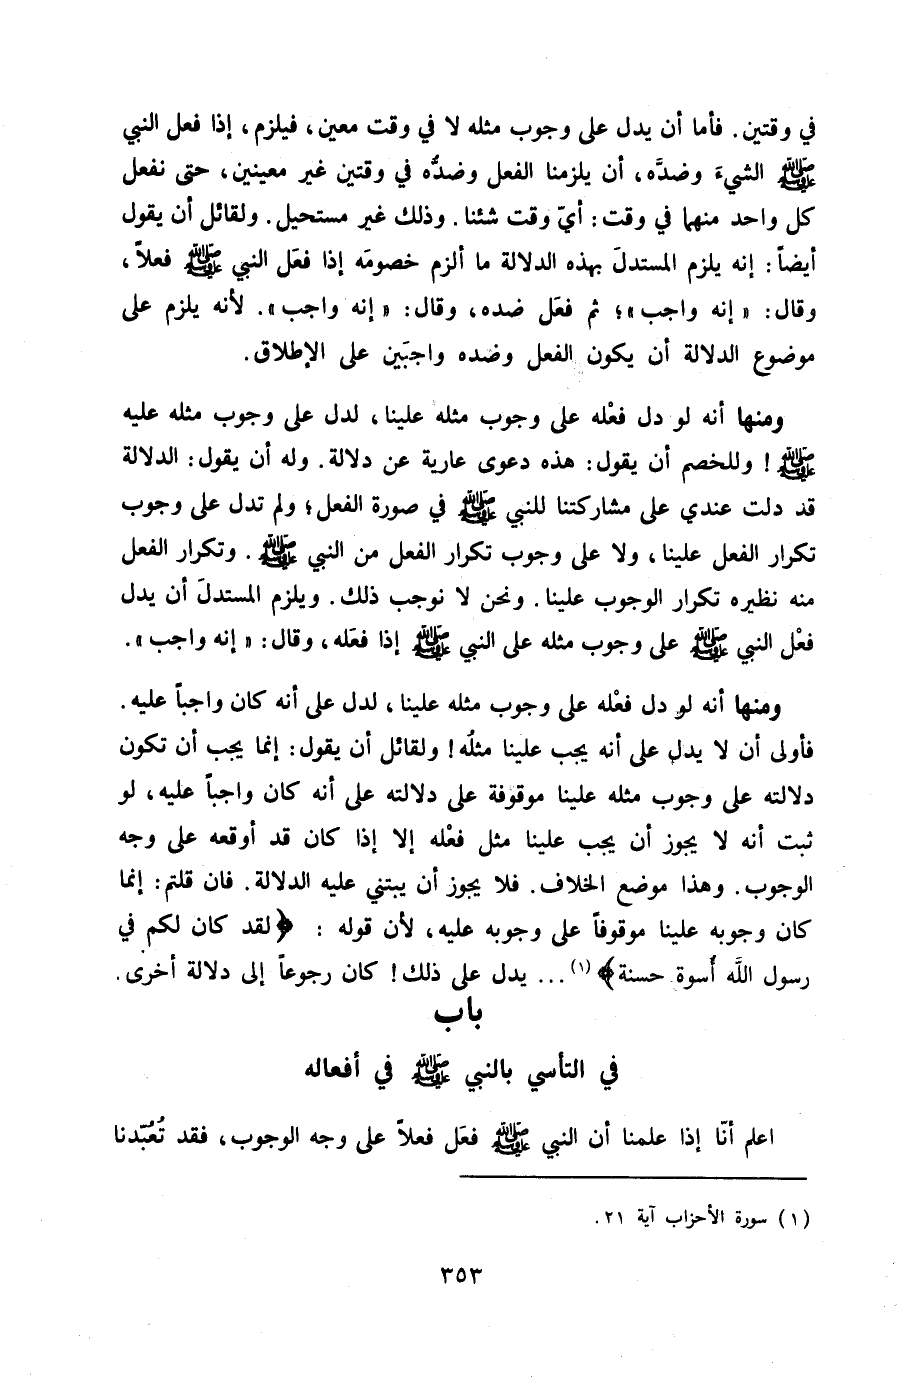 في وقتين. فأما أن يدل على وجوب مثله لا في وقت معين، فيلزم، إذا فعل النبي
ﷺ الشيءَ وضدَّه، أن يلزمنا الفعل وضدُّه في وقتين غير معينين، حتى نفعل
كل واحد منهما في وقت: أيّ وقت شئنا. وذلك غير مستحيل. ولقائل أن يقول
أيضاً: إنه يلزم المستدلَ بهذه الدلالة ما ألزم خصومَه إذا فعَل النبي ﷺ فعلاً،
وقال: « إنه واجب »؛ ثم فعَل ضده، وقال: « إنه واجب ». لأنه يلزم على
موضوع الدلالة أن يكون الفعل وضده واجبَين على الإطلاق.
ومنها أنه لو دل فعْله على وجوب مثله علينا، لدل على وجوب مثله عليه
ﷺ! وللخصم أن يقول: هذه دعوى عارية عن دلالة. وله أن يقول: الدلالة
قد دلت عندي على مشاركتنا للنبي ﷺ في صورة الفعل؛ ولم تدل على وجوب
تكرار الفعل علينا، ولا على وجوب تكرار الفعل من النبي ﷺ. وتكرار الفعل
منه نظيره تكرار الوجوب علينا. ونحن لا نوجب ذلك. ويلزم المستدلَ أن يدل
فعْل النبي ﷺ على وجوب مثله على النبي ﷺ إذا فعَله، وقال: « إنه واجب ».
ومنها أنه لو دل فعْله على وجوب مثله علينا، لدل على أنه كان واجباً عليه.
فأولى أن لا يدل على أنه يجب علينا مثلُه! ولقائل أن يقول: إنما يجب أن تكون
دلالته على وجوب مثله علينا موقوفة على دلالته على أنه كان واجباً عليه، لو
ثبت أنه لا يجوز أن يجب علينا مثل فعْله إلا إذا كان قد أوقعه على وجه
الوجوب. وهذا موضع الخلاف. فلا يجوز أن يبتني عليه الدلالة. فان قلتم: إنما
كان وجوبه علينا موقوفاً على وجوبه عليه، لأن قوله : ﴿لقد كان لكم في
رسول اللَّه أُسوة حسنة﴾(١)... يدل على ذلك! كان رجوعاً إلى دلالة أخرى.
باب
في التأسي بالنبي ﷺ في أفعاله
اعلم أنّا إذا علمنا أن النبي ﷺ فعَل فعلاً على وجه الوجوب، فقد تُعُبّدنا
(١) سورة الأحزاب آية ٢١.
٣٥٣